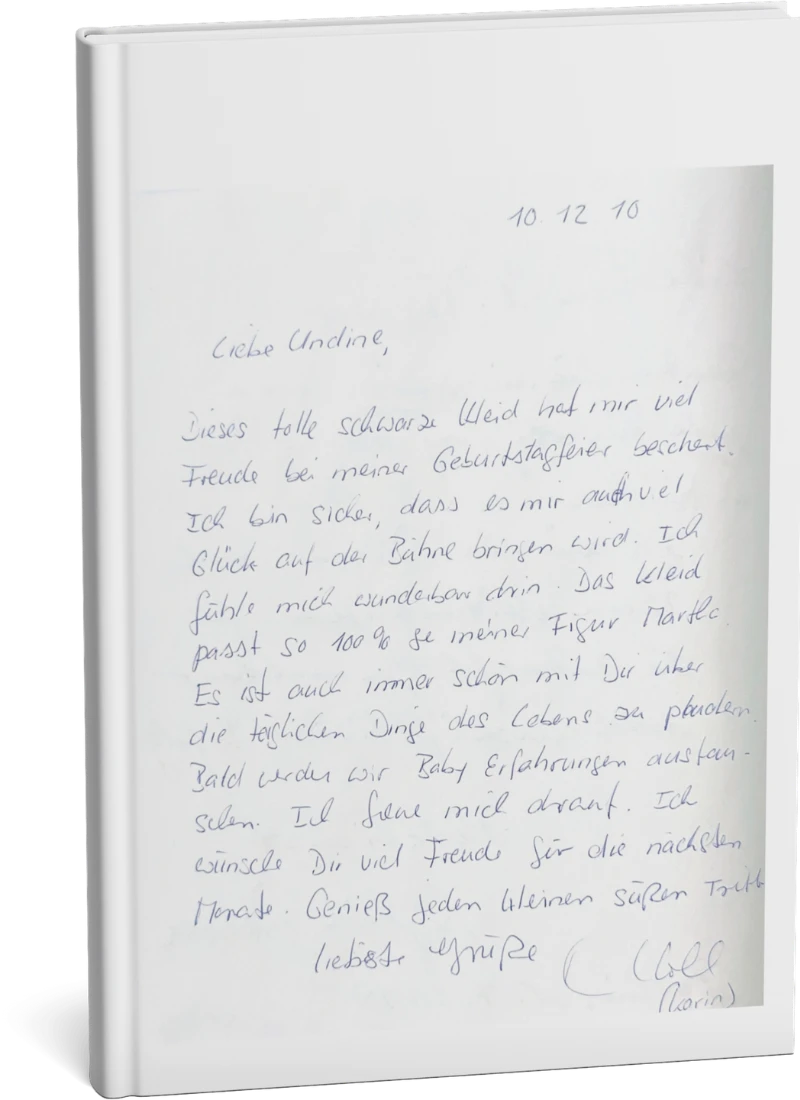 10. 12 10
Liebe Undine,
Dieses tolle schwarze Kleid hat mir viel
Freude bei meiner Geburtstagfeier beschert.
Ich bin sicher, dass es mir auch viel
Glück auf der Bühne bringen wird. Ich
fühle mich wunderbar drin. Das Kleid
passt so 100% zu meiner Figur
Es ist auch immer schön mit Dir über
die täglichen Dinge des Lebens zu plaudern.
Bald werden wir Baby Erfahrungen austau-
schen. Ich freue mich drauf. Ich
wünsche Dir viel Freude für die nächsten
Monate. Genieß jeden kleinen süßen Tritt
liebste Grüße